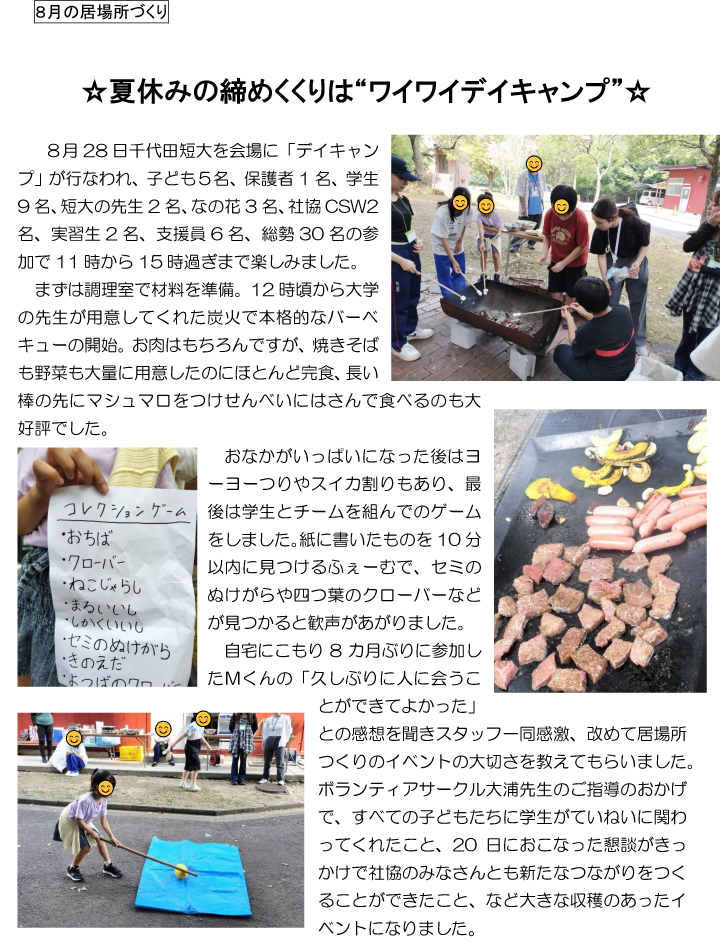 8月の居場所づくり
☆夏休みの締めくくりは“ワイワイデイキャンプ”☆
８月28日千代田短大を会場に「デイキャン
プ」が行なわれ、子ども５名、保護者１名、学生
９名、短大の先生２名、なの花３名、社協CSW２
名、実習生２名、支援員６名、総勢30名の参
加で11時から15時過ぎまで楽しみました。
まずは調理室で材料を準備。12時頃から大学
の先生が用意してくれた炭火で本格的なバーベ
キューの開始。お肉はもちろんですが、焼きそば
も野菜も大量に用意したのにほとんど完食、長い
棒の先にマシュマロをつけせんべいにはさんで食べるのも大
好評でした。
おなかがいっぱいになった後はヨ
ーヨーつりやスイカ割りもあり、最
後は学生とチームを組んでのゲーム
をしました。紙に書いたものを10分
以内に見つけるふぇーむで、セミの
ぬけがらや四つ葉のクローバーなど
が見つかると歓声があがりました。
自宅にこもり8カ月ぶりに参加し
たMくんの「久しぶりに人に会うこ
とができてよかった」
との感想を聞きスタッフ一同感激、改めて居場所
つくりのイベントの大切さを教えてもらいました。
ボランティアサークル大浦先生のご指導のおかげ
で、すべての子どもたちに学生がていねいに関わ
ってくれたこと、20日におこなった懇談がきっ
かけで社協のみなさんとも新たなつながりをつく
ることができたこと、など大きな収穫のあったイ
ベントになりました。
コレクションゲーム
・おちば
・クローバー
・ねこじゃらし
・まるいいし
・しかくいいし
・セミのぬけがら
・きのえだ
・よつばのクローバー